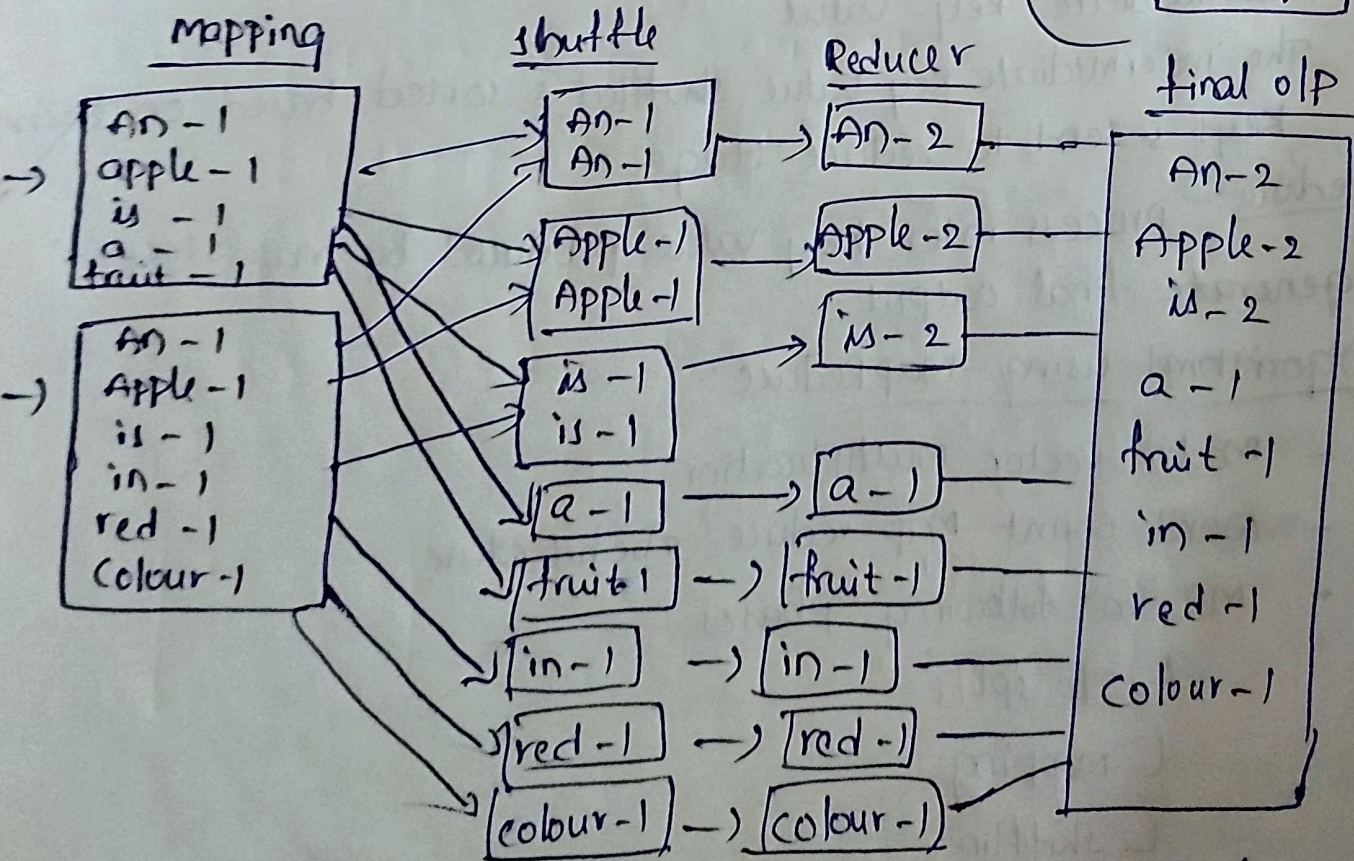 Mapping
An-1
apple-1
is-1
a-1
fruit-1
An-1
Apple-1
is-1
in-1
red-1
Colour-1
shuttle
An-1
An-1
Apple-1
Apple-1
is-1
is-1
a-1
fruit-1
in-1
red-1
colour-1
Reducer
An-2
Apple-2
is-2
a-1
fruit-1
in-1
red-1
colour-1
final o/p
An-2
Apple-2
is-2
a-1
fruit-1
in-1
red-1
colour-1